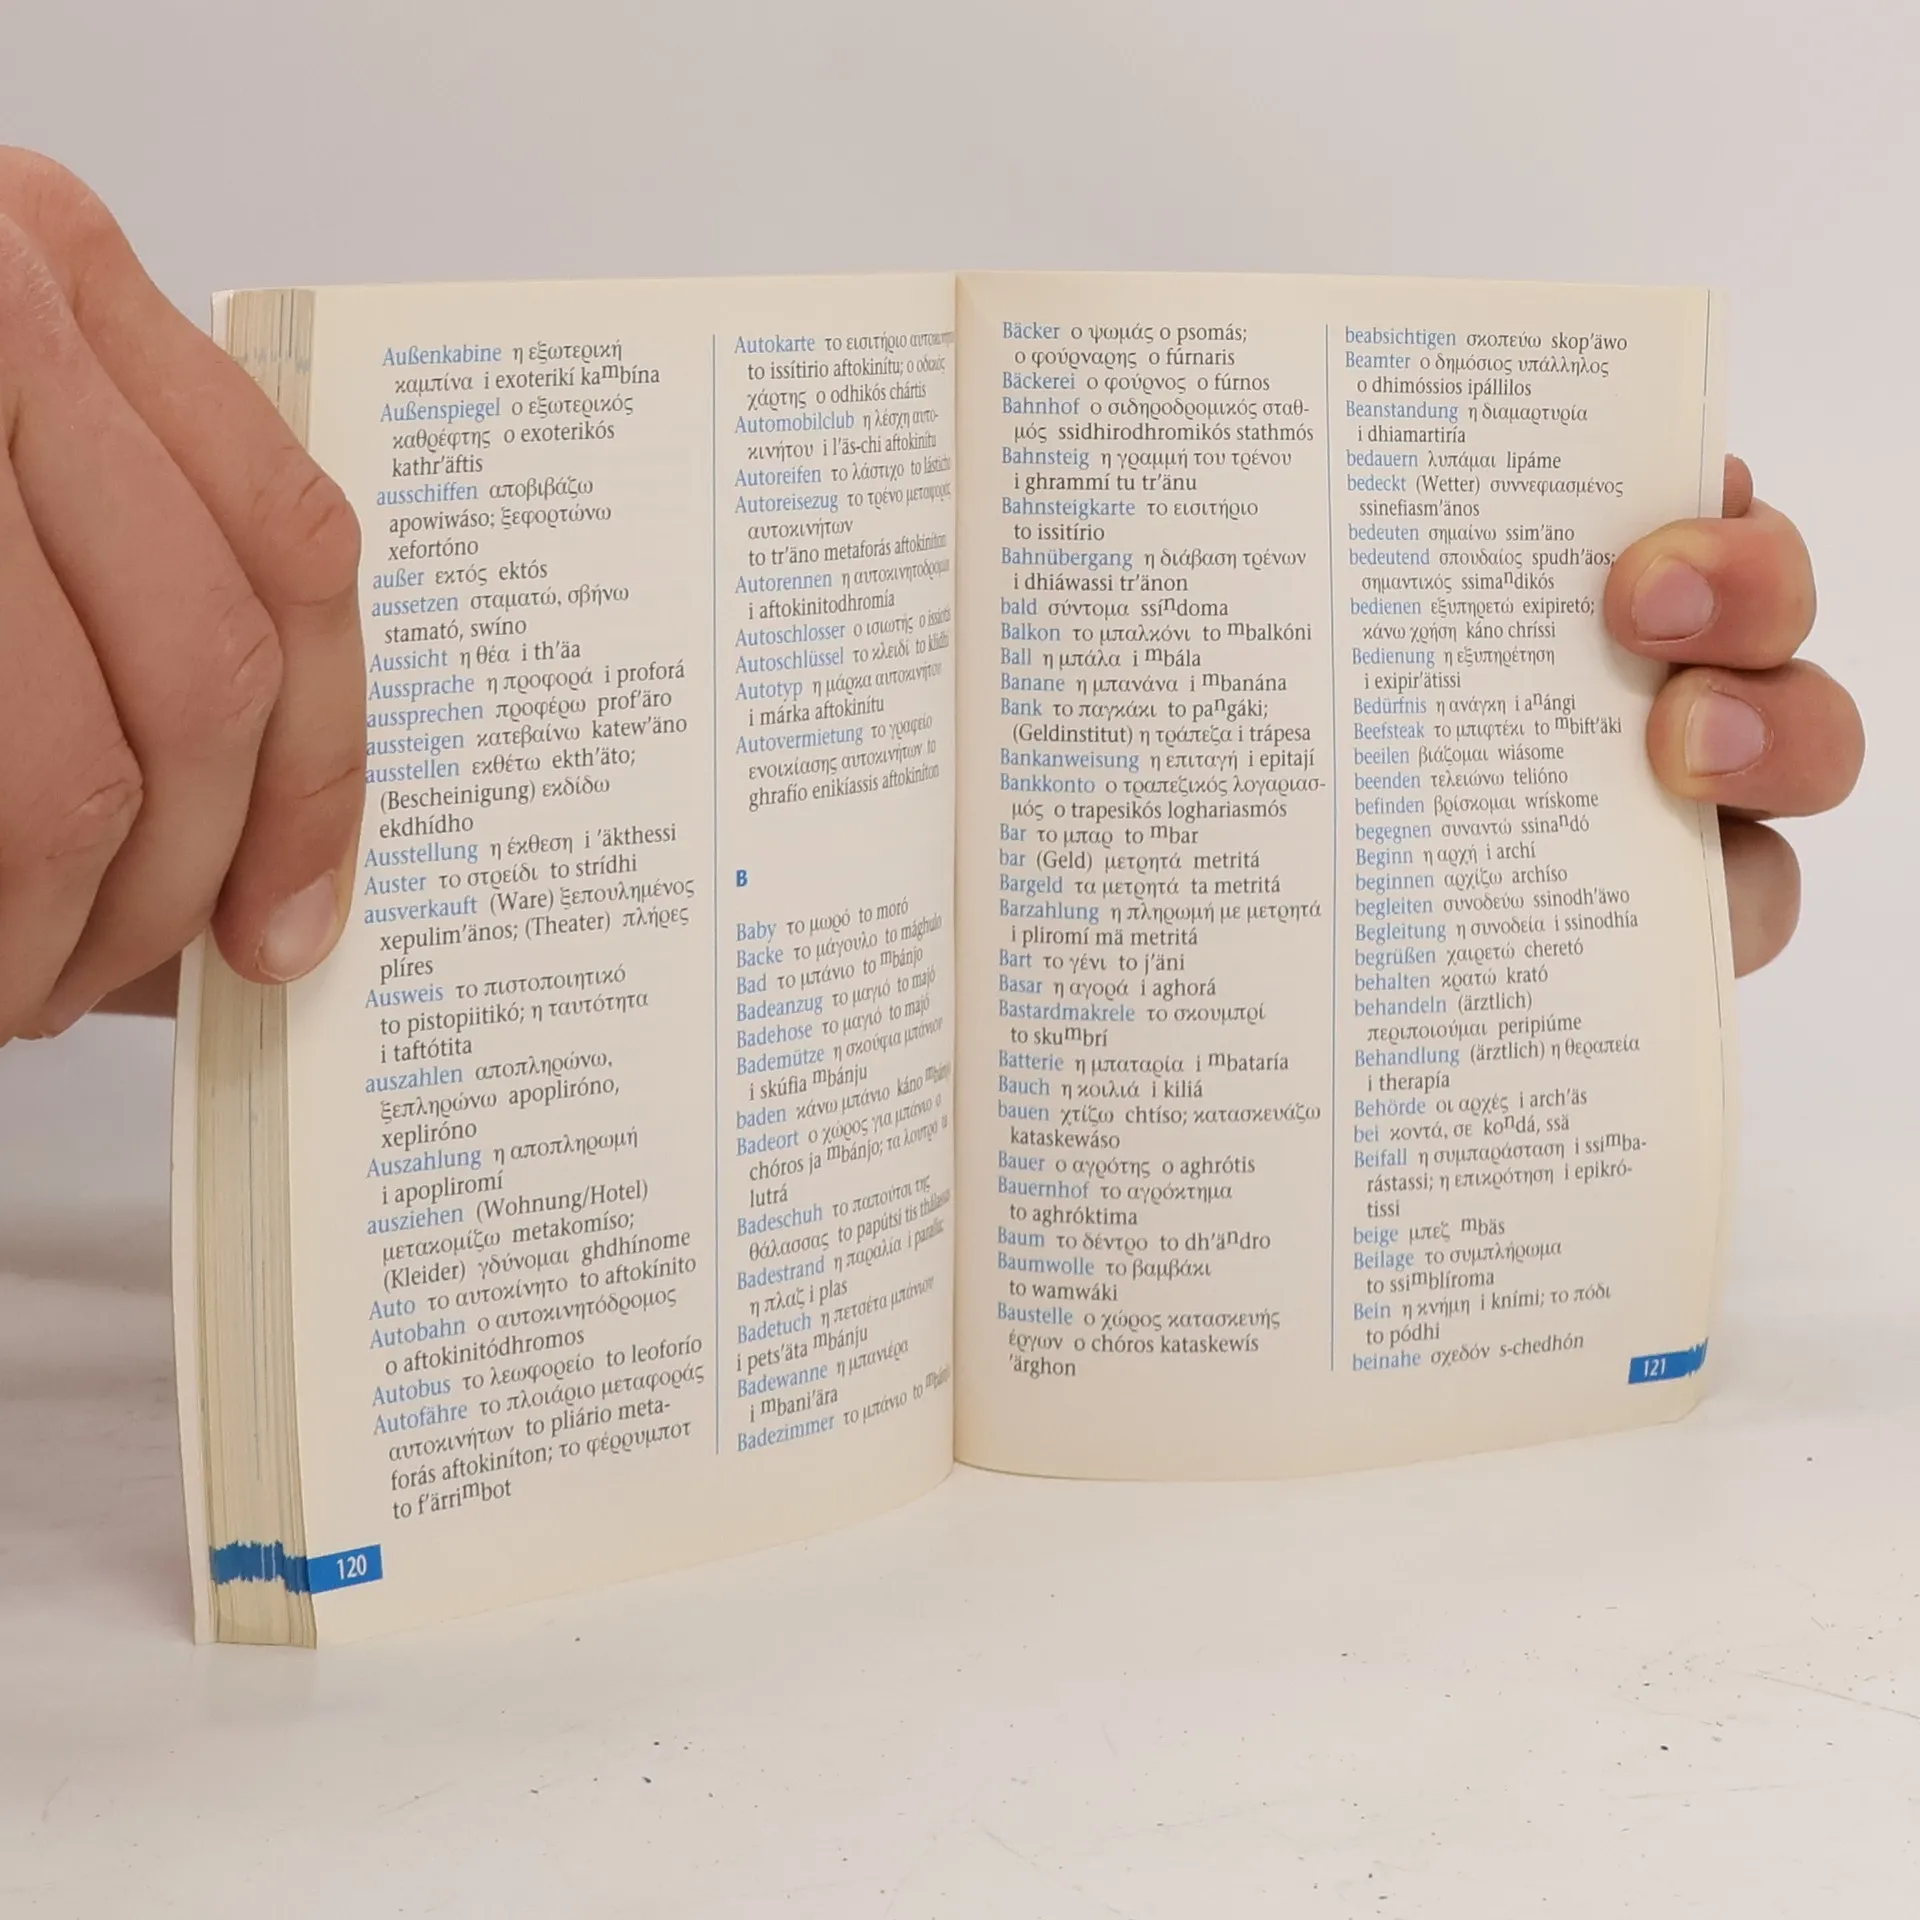 Außenkabine η εξωτερική
καμπίνα i exoterikí kaᵐbína
Außenspiegel ο εξωτερικός
καθρέφτης o exoterikós
kathr'äftis
ausschiffen αποβιβάζω
apowiwáso; ξεφορτώνω
xefortóno
außer εκτός ektós
aussetzen σταματώ, σβήνω
stamató, swíno
Aussicht η θέα i th'äa
Aussprache η προφορά i proforá
aussprechen προφέρω prof'äro
aussteigen κατεβαίνω katew'äno
ausstellen εκθέτω ekth'äto;
(Bescheinigung) εκδίδω
ekdhídho
Ausstellung η έκθεση i 'äkthessi
Auster το στρείδι to strídhi
ausverkauft (Ware) ξεπουλημένος
xepulim'änos; (Theater) πλήρες
plíres
Ausweis το πιστοποιητικό
to pistopiitikó; η ταυτότητα
i taftótita
auszahlen αποπληρώνω,
ξεπληρώνω apopliróno,
xepliróno
Auszahlung η αποπληρωμή
i apopliromí
ausziehen (Wohnung/Hotel)
μετακομίζω metakomíso;
(Kleider) γδύνομαι ghdhínome
Auto το αυτοκίνητο to aftokínito
Autobahn ο αυτοκινητόδρομος
o aftokinitódhromos
Autobus το λεωφορείο to leoforío
Autofähre το πλοιάριο μεταφοράς
αυτοκινήτων to pliário meta-
forás aftokiníton; το φέρρυμποτ
to f'ärriᵐbot
120
Autokarte το εισιτήριο
to issitírio aftokinítu; ο οδικός
χάρτης o odhikós chártis
Automobilclub η λέσχη αυτο-
κινήτου i l'äs-chi aftokinítu
Autoreifen το λάστιχο to lásticho
Autoreisezug το τρένο μεταφοράς
αυτοκινήτων
to tr'äno metaforás aftokiníton
Autorennen η αυτοκινητοδρομία
i aftokinitodhromía
Autoschlosser ο ισιωτής o issiotís
Autoschlüssel το κλειδί to klidhí
Autotyp η μάρκα αυτοκινήτου
i márka aftokinítu
Autovermietung το γραφείο
ενοικίασης αυτοκινήτων to
ghrafío enikíassis aftokiníton
B
Baby το μωρό to moró
Backe το μάγουλο to mághulo
Bad το μπάνιο to ᵐbánjo
Badeanzug το μαγιό to majó
Badehose το μαγιό to majó
Bademütze η σκούφια μπάνιου
i skúfia ᵐbánju
baden κάνω μπάνιο káno ᵐbánjo
Badeort ο χώρος για μπάνιο o
chóros ja ᵐbánjo; τα λουτρά ta
lutrá
Badeschuh το παπούτσι της
θάλασσας to papútsi tis thálassas
Badestrand η παραλία i paralía;
η πλαζ i plas
Badetuch η πετσέτα μπάνιου
i pets'äta ᵐbánju
Badewanne η μπανιέρα
i ᵐbani'ära
Badezimmer το μπάνιο to ᵐbánjo
Bäcker ο ψωμάς o psomás;
ο φούρναρης o fúrnaris
Bäckerei ο φούρνος o fúrnos
Bahnhof ο σιδηροδρομικός σταθ-
μός ssidhirodhromikós stathmós
Bahnsteig η γραμμή του τρένου
i ghrammí tu tr'änu
Bahnsteigkarte το εισιτήριο
to issitírio
Bahnübergang η διάβαση τρένων
i dhiáwassi tr'änon
bald σύντομα ssíⁿdoma
Balkon το μπαλκόνι to ᵐbalkóni
Ball η μπάλα i ᵐbála
Banane η μπανάνα i ᵐbanána
Bank το παγκάκι to paⁿgáki;
(Geldinstitut) η τράπεζα i trápesa
Bankanweisung η επιταγή i epitají
Bankkonto ο τραπεζικός λογαριασ-
μός o trapesikós loghariasmós
Bar το μπαρ to ᵐbar
bar (Geld) μετρητά metritá
Bargeld τα μετρητά ta metritá
Barzahlung η πληρωμή με μετρητά
i pliromí mä metritá
Bart το γένι to j'äni
Basar η αγορά i aghorá
Bastardmakrele το σκουμπρί
to skuᵐbrí
Batterie η μπαταρία i ᵐbataría
Bauch η κοιλιά i kiliá
bauen χτίζω chtíso; κατασκευάζω
kataskewáso
Bauer ο αγρότης o aghrótis
Bauernhof το αγρόκτημα
to aghróktima
Baum το δέντρο to dh'äⁿdro
Baumwolle το βαμβάκι
to wamwáki
Baustelle ο χώρος κατασκευής
έργων o chóros kataskewís
'ärghon
beabsichtigen σκοπεύω skop'äwo
Beamter ο δημόσιος υπάλληλος
o dhimóssios ipállilos
Beanstandung η διαμαρτυρία
i dhiamartiría
bedauern λυπάμαι lipáme
bedeckt (Wetter) συννεφιασμένος
ssinefiasm'änos
bedeuten σημαίνω ssim'äno
bedeutend σπουδαίος spudh'äos;
σημαντικός ssimaⁿdikós
bedienen εξυπηρετώ exipiretó;
κάνω χρήση káno chríssi
Bedienung η εξυπηρέτηση
i exipir'ätissi
Bedürfnis η ανάγκη i aⁿángi
Beefsteak το μπιφτέκι to ᵐbift'äki
beeilen βιάζομαι wiásome
beenden τελειώνω telióno
befinden βρίσκομαι wrískome
begegnen συναντώ ssinaⁿdó
Beginn η αρχή i archí
beginnen αρχίζω archíso
begleiten συνοδεύω ssinodh'äwo
Begleitung η συνοδεία i ssinodhía
begrüßen χαιρετώ cheretó
behalten κρατώ krató
behandeln (ärztlich)
περιποιούμαι peripiúme
Behandlung (ärztlich) η θεραπεία
i therapía
Behörde οι αρχές i arch'äs
bei κοντά, σε koⁿdá, ssä
Beifall η συμπαράσταση i ssiᵐba-
rástassi; η επικρότηση i epikró-
tissi
beige μπεζ ᵐbäs
Beilage το συμπλήρωμα
to ssiᵐblíroma
Bein η κνήμη i kními; το πόδι
to pódhi
beinahe σχεδόν s-chedhón
121